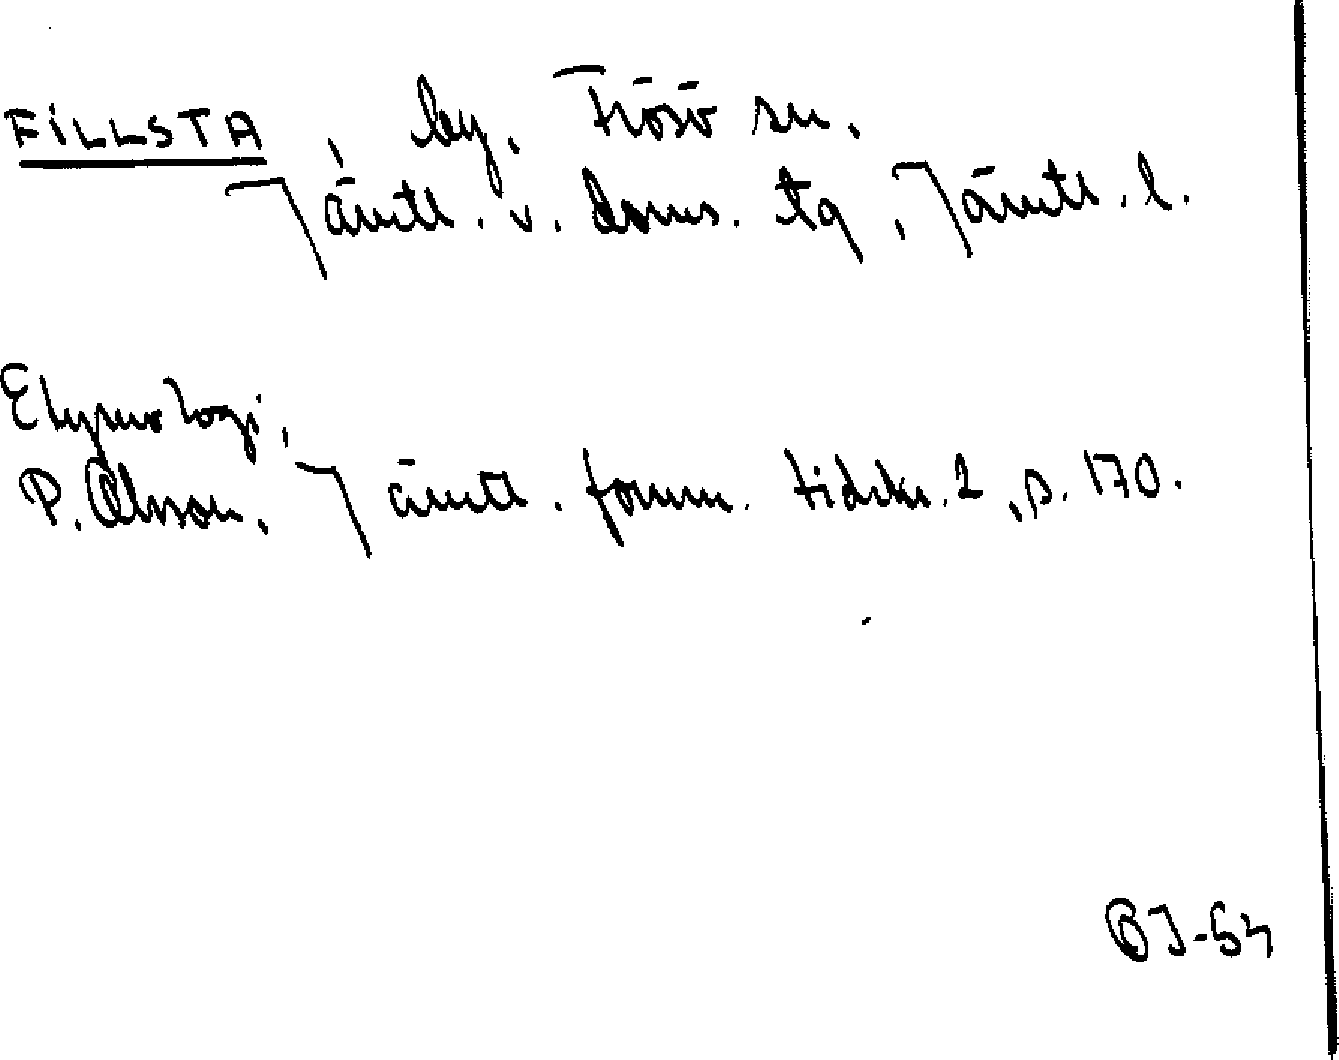 FILLSTA, by, Frösö sn.
Jämtl. v. doms. tg, Jämtl. l.
Etymologi,
P. Olsson, Jämtl. fornm. tidskr. 2, s. 170.
BJ-54